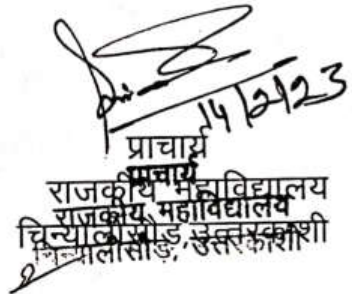 14/2/23
प्राचार्य
प्राचार्य
राजकीय महाविद्यालय
राजकीय महाविद्यालय
चिन्यालीसौड़, उत्तरकाशी
चिन्यालीसौड़, उत्तरकाशी